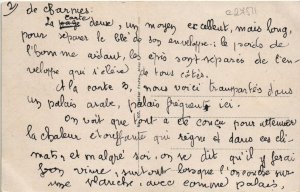 2)
de charpies.
La carte deux, un moyen excellent, mais long,
pour séparer le blé de son enveloppe: le poids de
l'homme aidant, les épis sont séparés de l'en-
veloppe qui s'élève de tous côtés.
A la carte 3, nous voici transportés dans
un palais arabe, palais fréquent ici.
On voit que tout a été conçu pour atténuer
la chaleur étouffante qui règne et dans ces cli-
mats, et malgré soi, on se dit qu'il y ferai
bon vivre, surtout lorsque l'on couche sur
une planche, avec comme palais,